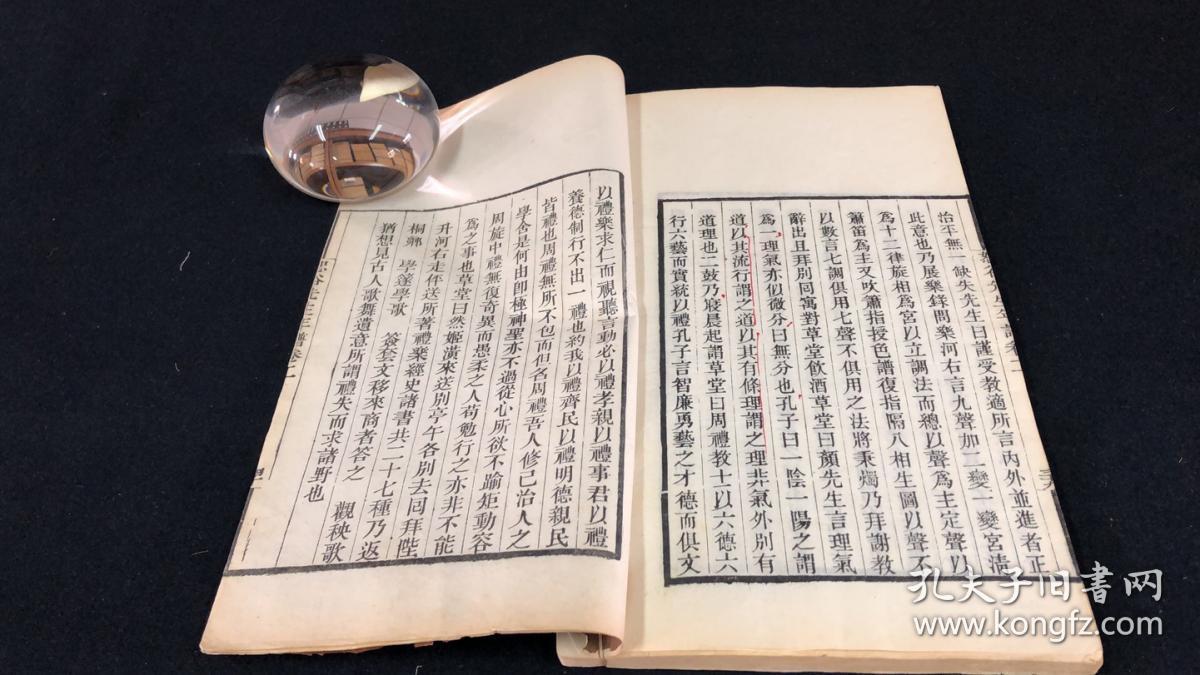 治平無一缺失先生曰謹受教適所言內外並進者正
此意也乃展樂錄問樂河右言九聲加二變一變宮淸
為十二律旋相為宮以立調法而總以聲為主定聲以
簫笛為主又吹簫指授色譜復指隔八相生圖以聲不
以數言七調俱用七聲不俱用之法將秉燭乃拜謝教
辭出且拜別囘寓對草堂飲酒草堂曰顏先生言理氣
為一理氣亦似微分曰無分也孔子曰一陰一陽之謂
道以其流行謂之道以其有條理謂之理非氣外別有
道理也二鼓乃寢晨起謂草堂曰周禮教士以六德六
行六藝而實統以禮孔子言智廉勇藝之才德而俱文
以禮樂求仁而視聽言動必以禮孝親以禮事君以禮
養德制行不出一禮也約我以禮齊民以禮明德親民
皆禮也周禮無所不包而但名周禮吾人修己治人之
學舍是何由卽極神聖亦不過從心所欲不踰矩動容
周旋中禮無復奇異而愚柔之人苟勉行之亦非不能
為之事也草堂曰然姬潢來送別亭午各別去囘拜陛
升河右走伻送所著禮樂經史諸書共二十七種乃返
桐鄉 學箑學歌 簽套文移來商者答之 觀秧歌
猶想見古人歌舞遺意所謂禮失而求諸野也
孔夫子旧书网
www.kongfz.com